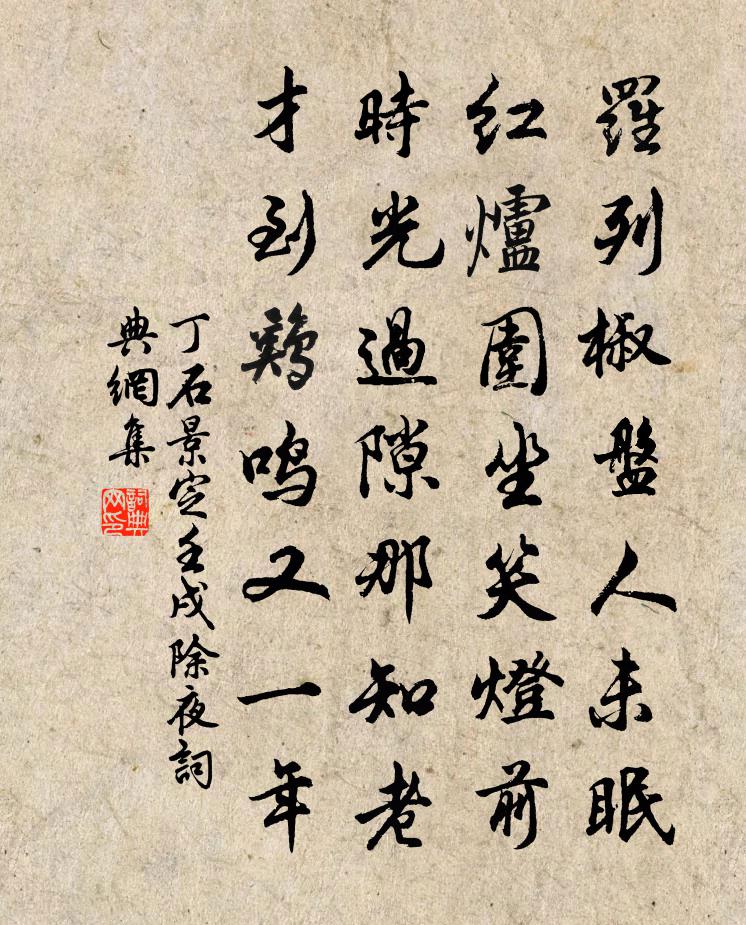 羅列椒盤人未眠
紅爐圍坐笑燈前
時光過隙那知老
才到鷄鳴又一年
丁石景定壬戌除夜詞
典網集
詞典
网印